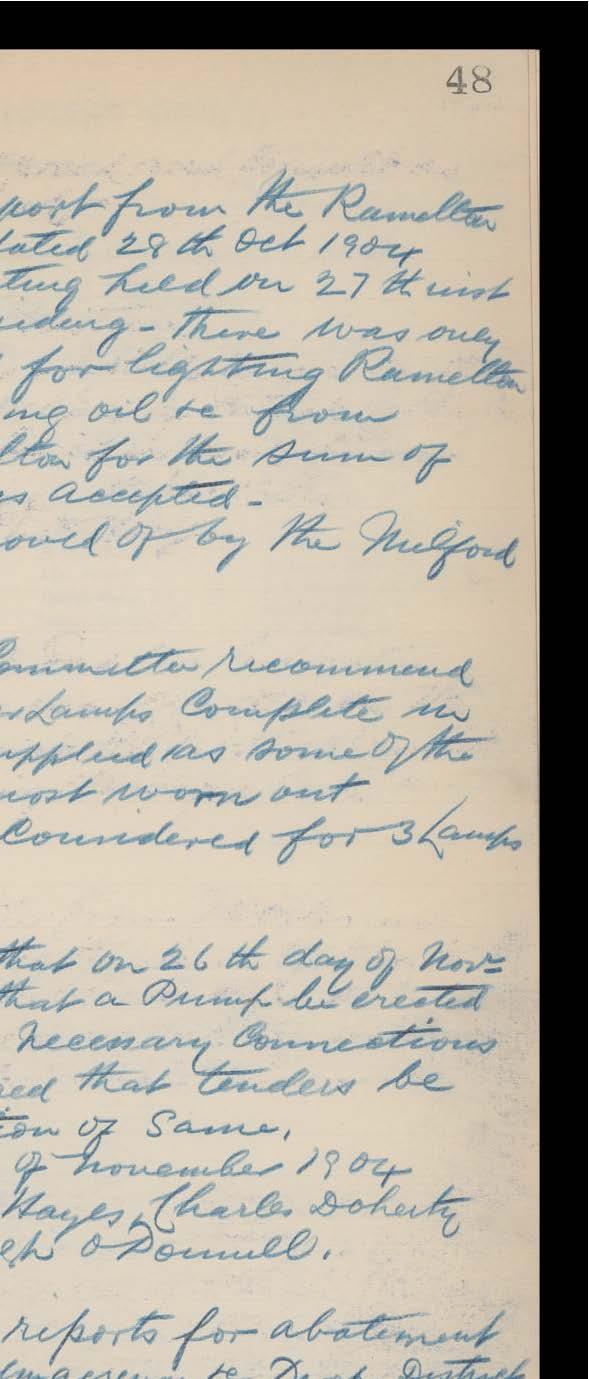 48
port from the Ramelton
dated 28th Oct 1904
ting held on 27th inst
siding - there was only
for lighting Ramelton
ing oil &c from
lton for the sum of
s accepted -
oved of by the Milford
Committee recommend
Lamps Complete in
upplied as some of the
most worn out
Considered for 3 Lamps
that on 26th day of Nov=
that a Pump be erected
necessary Connections
red that tenders be
ion of Same,
of November 1904
Hayes, Charles Doherty
eph O'Donnell.
reports for abatement
&c District